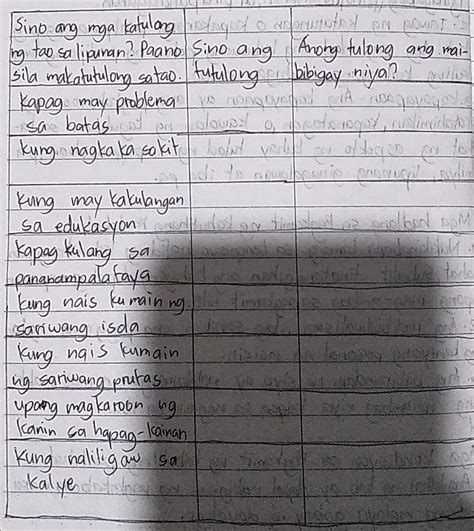 Sino ang mga katulong
ng tao sa lipunan? Paano
sila makatutulong sa tao.
Sino ang
tutulong
Anong tulong ang mai-
bibigay niya?
Kapag may problema
sa batas
Kung nagkaka sakit
Kung may kakulangan
sa edukasyon
Kapag kulang sa
pananampalataya
Kung nais kumain ng
sariwang isda
Kung nais kumain
ng sariwang prutas
upang magkaroon ng
kanin sa hapag-kainan
Kung naliligaw sa
kalye